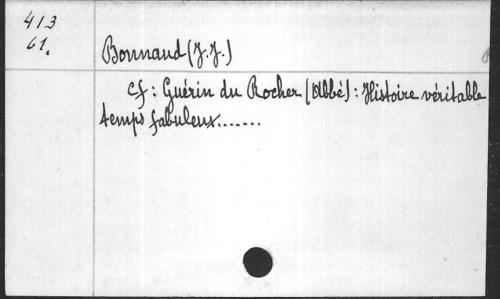 413
61.
Bonnaud (J.J.)
cf : Guérin du Rocher (Abbé) : Histoire véritable
temps fabuleux.......